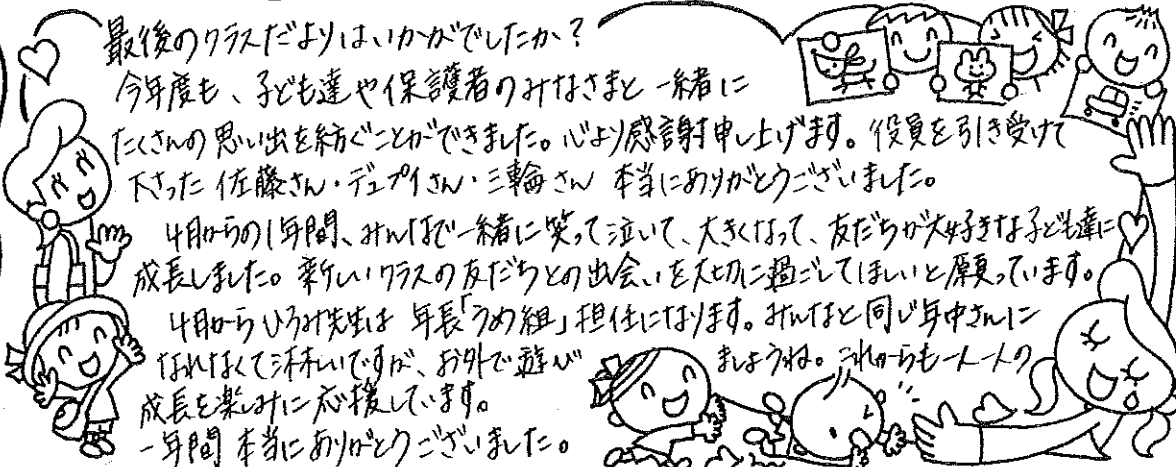 最後のクラスだよりはいかがでしたか?
今年度も、子ども達や保護者のみなさまと一緒に
たくさんの思い出を紡ぐことができました。心より感謝申し上げます。役員を引き受けて
下さった佐藤さん・デュプイさん・三輪さん 本当にありがとうございました。
4月からの1年間、みんなで一緒に笑って泣いて、大きくなって、友だちが大好きな子ども達に
成長しました。新しいクラスの友だちとの出会いを大切に過ごしてほしいと願っています。
4月からひろみ先生は 年長「うめ組」担任になります。みんなと同じ年中さんに
なれなくて淋しいですが、お外で遊び ましょうね。これからも一人一人の
成長を楽しみに応援しています。
一年間 本当にありがとうございました。